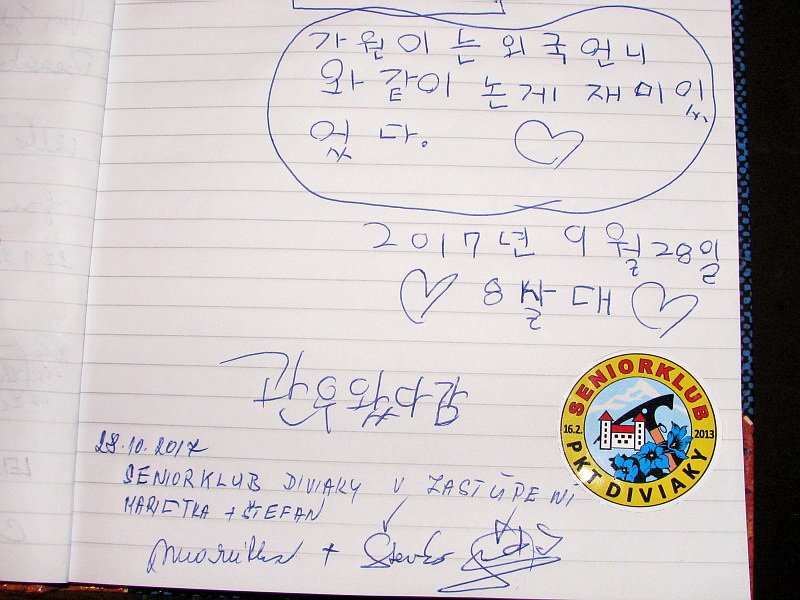 가원이는 외국언니
와 같이 논게 재미있
었다. ♡
2017년 9월 28일
♡ 8살 때 ♡
관우왔다감
28.10.2017
SENIORKLUB DIVIAKY V ZASTÚPENÍ
MARIETKA + ŠTEFAN
SENIORKLUB
16.2. 2013
PKT DIVIAKY